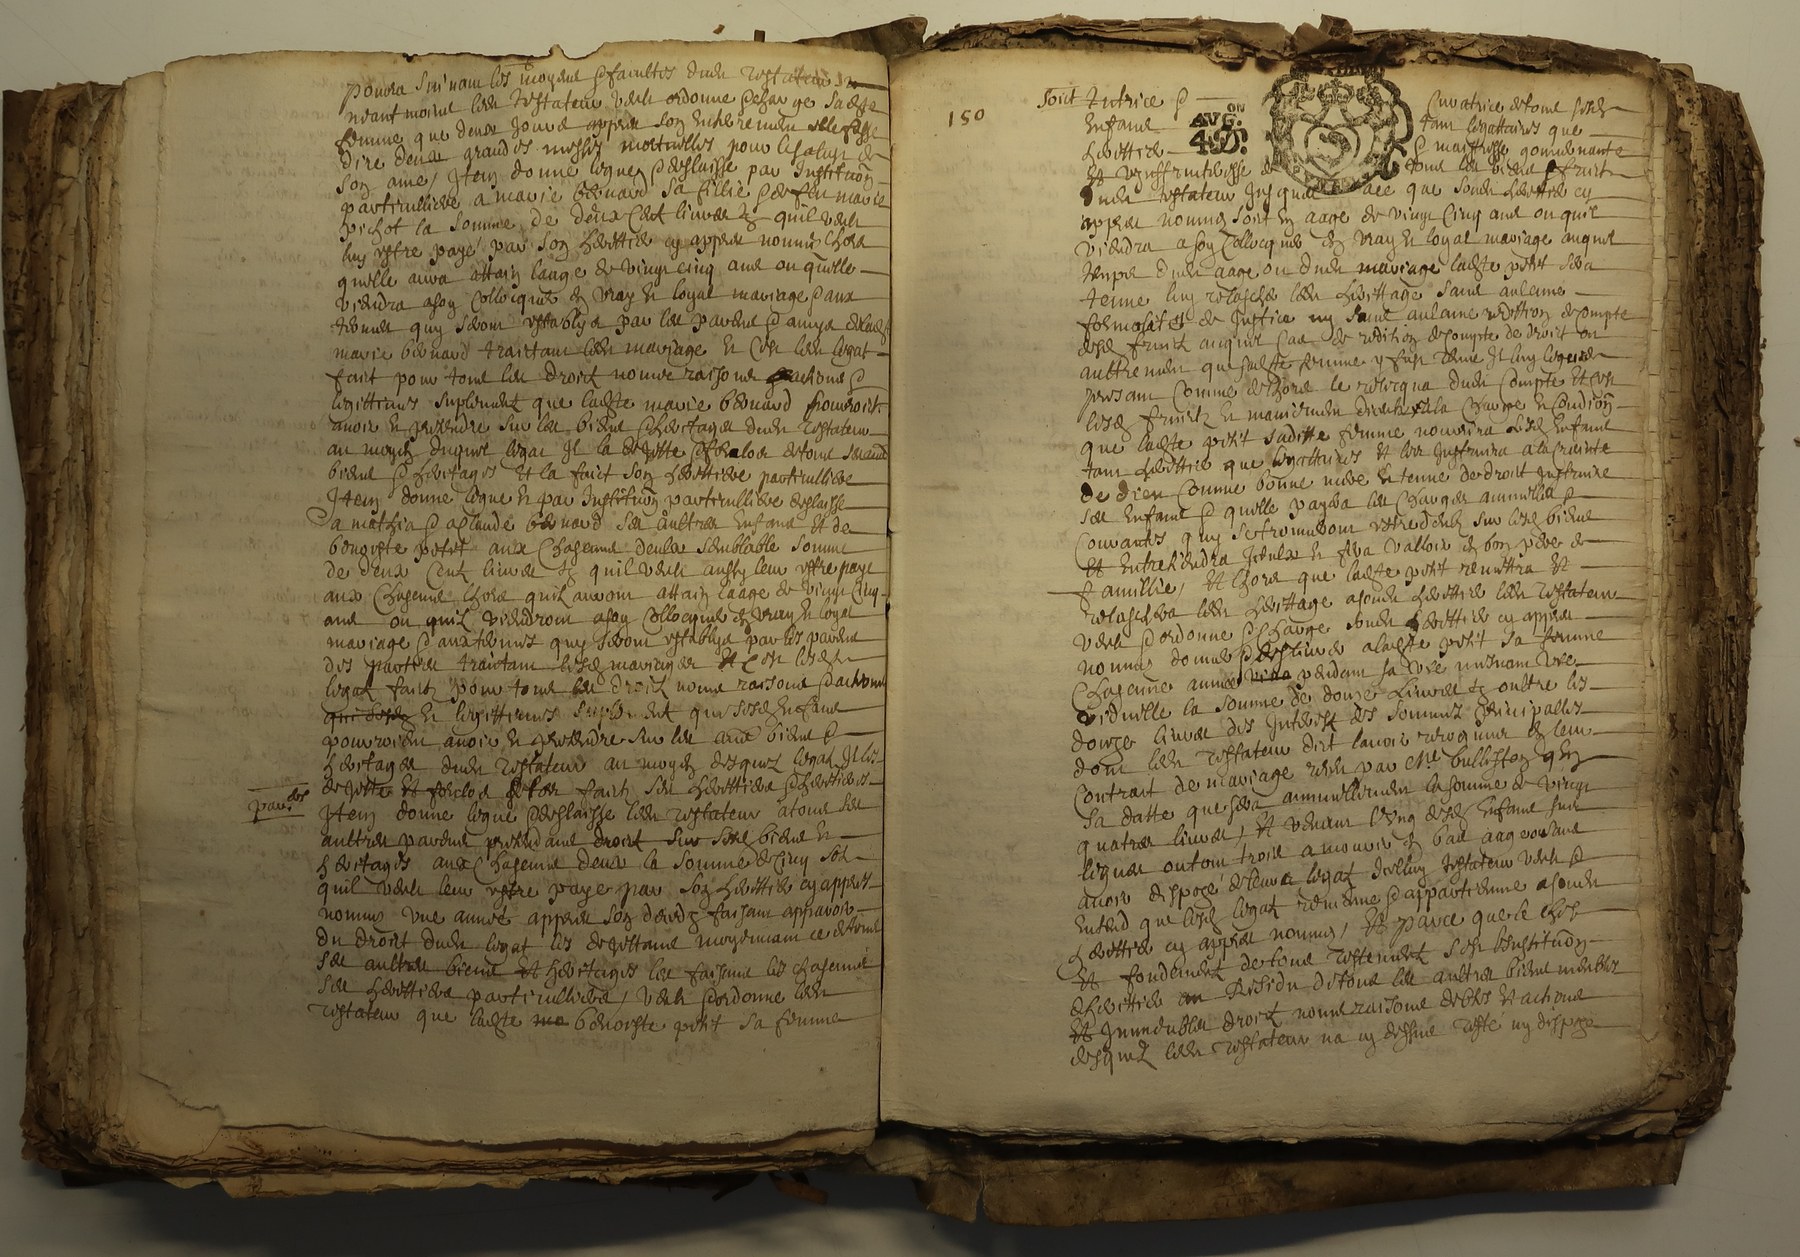 pourra suivant les moyens & facultes dud testateur Et
neantmoins led testateur veult ordonne & charge sadte
femme que deux jours appres son enterrement elle fasse
dire deux grandes messes mortuelles pour le salut de
son ame / Item donne legue & deslaisse par Institution
particulliere a marie benard sa fillie & de feu marie
pichot la somme de deux cent livres tz quil veult
luy estre paye par son heritier cy appres nommé lhors
quelle aura attain laage de vingt cinq ans ou quelle
viendra a soy collocquer en vray et loyal mariage & aux
termes quy seront establys par les parens & amys de lad
marie benard traictant led mariage Et c'est led legat
faict pour tous les droicts noms raisons & actions &
legittimes suplement que ladte marie benard pourroit
avoir et prettendre sur les biens & heritages dud testateur
au moyen duquel legat Il la dejette & forclos de tous ses aultres
biens & heritages Et la faict son herittiere particulliere
Item donne legue et par Institution particulliere deslaisse
a mathia & aclaude benard ses aultres enfans Et de
benoiste petit aux chascuns deulx semblable somme
de deux cent livres tz quil veult aussy leur estre paye
aux chascuns lhors quilz auront attain laage de vingt cinq
ans ou quilz viendront a soy collocquer en vray et loyal
mariage & aux termes quy seront establys par les parens
des parties traictant lesd mariages Et c'est lesd
legatz faictz pour tous les droictz noms raisons & actions
et legittimes suplement que sesd enfans
pourroient avoir et prettendre sur les biens &
heritages dud testateur au moyen desquelz legatz Il les
dejette et forclos faictz ses herittiers & herittieres
pour des
Item donne legue & deslaisse led testateur a tous ses
aultres parens prettendans droict sur sesd biens et
heritages aux chascuns deux la somme de cinq solz
quil veult leur estre paye par son herittier cy appres
nommé une année appres son deceds faisant apparoir
du droict dud legat les dejettant moyennant ce de tous
ses aultres biens et heritages les faisant les chascuns
ses herittiers particulliers / veult & ordonne led
testateur que ladte benoiste petit sa femme
150
Soit tutrice & curatrice de tous sesd
AVG.ON
4.D.
enfans tam legattaires que
herittier & maistresse gouvernante
et usufruitiesse de tous les biens & fruits
dud testateur jusques a ce que soud herittier cy
appres nommé soit en aage de vingt cinq ans ou quil
viendra a soy collocquer en vray et loyal mariage auquel
temps dud aage ou dud mariage ladte petit sera
tenue luy relascher led herittage sans aulcune
formosité de justice ny sans aulcune reddition de compte
desd fruictz auquel cas de reddition de compte de droit ou
aultrement que sadte femme y fust tenue Il luy legue
presant comme de lhors le relicqua dud compte et ce
lesd fruictz et maniement dicelux a la charge et condiction
que ladte petit sadtte femme nourrira sesd enfans
tam herittier que legattaires Et les Instruira a la crainte
de dieu comme bonne mere est tenue de droit Instruire
ses enfans & quelle payera les charges annuelles &
courantes quy se trouveront estre deubz sur lesd biens
Et entretiendra Iceulx et fera valloir en bon pere de
famillie / Et lhors que ladte petit remettra Et
relaschera led herittage a soud herittier led testateur
veult & ordonne & charge soud herittier cy appres
nommé donner & deslivrer a ladte petit sa femme
chascune année pendant sa vye
viduelle la somme de douze livres tz oultre les
douze livres des Interest des sommes principalles
dont led testateur dict lavoir recogneue en leur
contract de mariage receu par Me bullisson
sa datte que sera annuellement la somme de vingt
quatres livres / Et venant lung desd enfans sus
legues ou tous trois a mourir en bas aage ou sans
avoir disposé de leurs legatz Icelluy testateur veult &
entend que lesd legatz revienne & appartienne a soud
herittier cy appres nommé / Et parce que le chef
Et fondement de tous testament est linstitution
dherittier au Residu de tous les aultres biens meubles
Et Immeubles droictz noms raisons debtes et actions
desquelz led testateur na cy dessus testé ny disposé